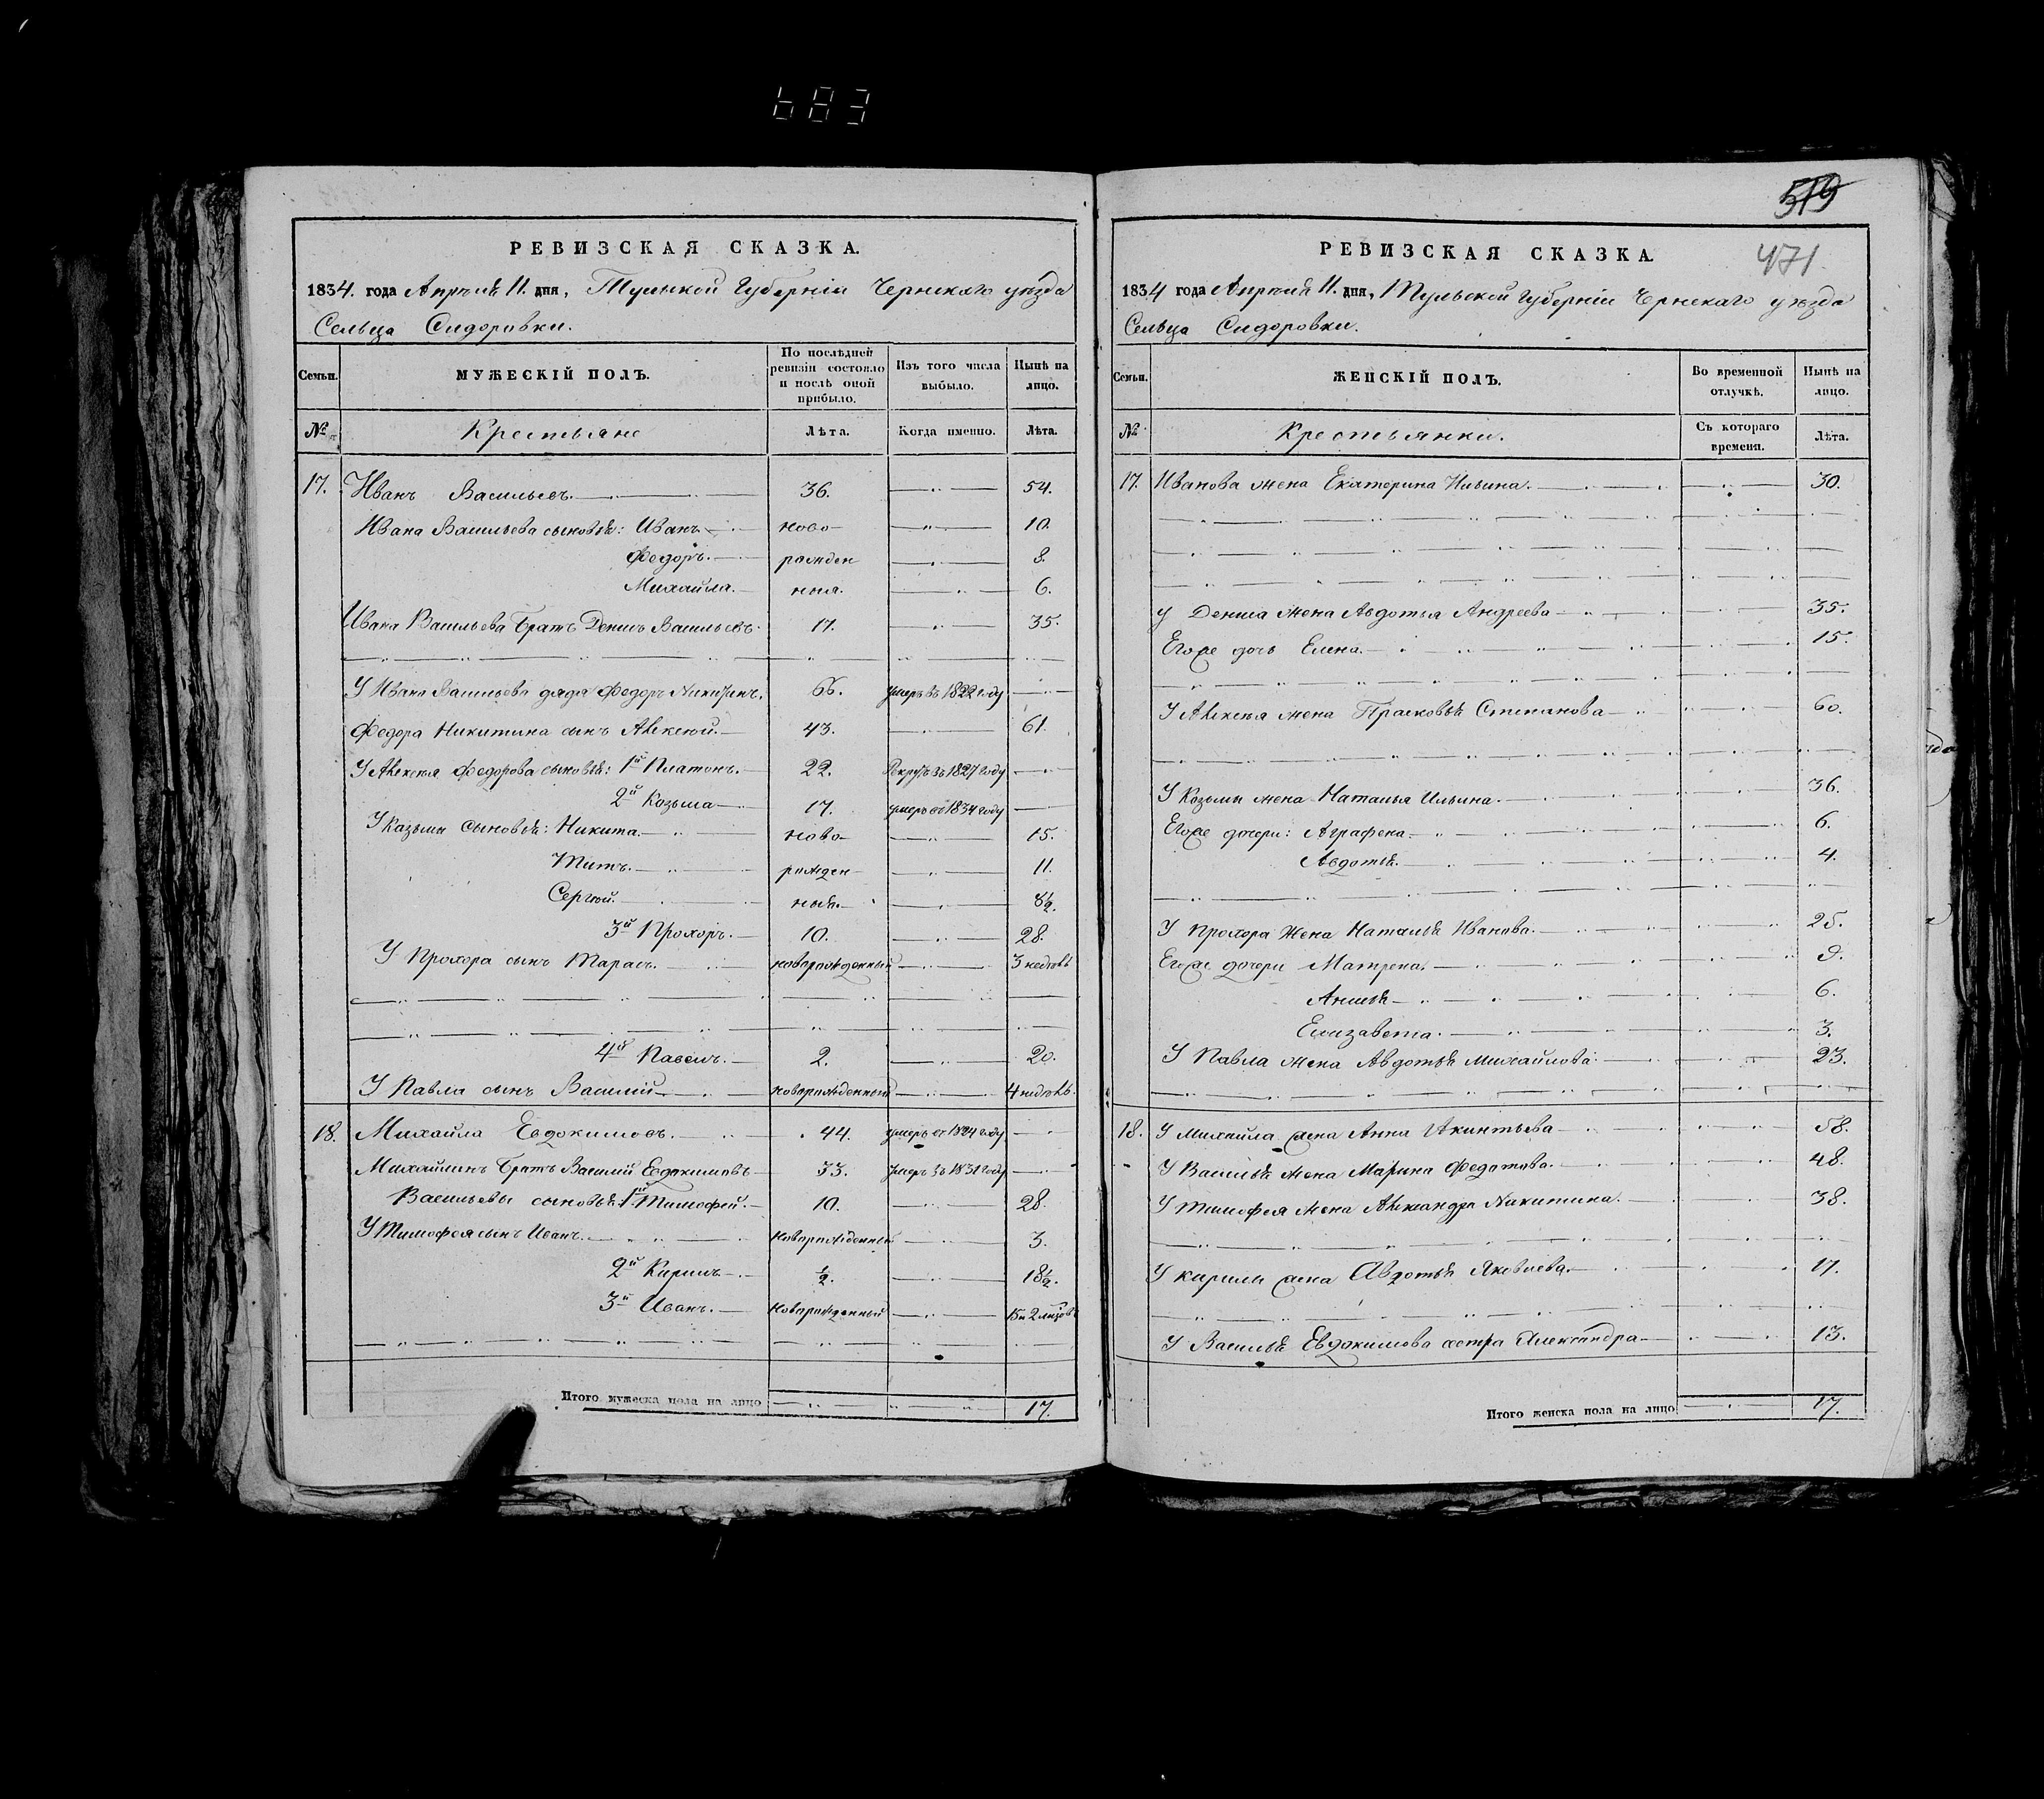 683
РЕВИЗСКАЯ СКАЗКА.
1834. года Апрѣля 11. дня, Тульской Губерніи Чернскаго уѣзда
Сельца Сидоровки.
Семьи.
МУЖЕСКІЙ ПОЛЪ.
По послѣдней ревизіи состояло и послѣ оной прибыло.
Изъ того числа выбыло.
Нынѣ на лицо.
№
Крестьяне
Лѣта.
Когда именно.
Лѣта.
17. Иванъ Васильевъ. 36. 54.
Ивана Васильева сыновья: Иванъ ново- 10.
Федоръ. рожден 8.
Михайла. ныя. 6.
Ивана Васильева братъ Денисъ Васильевъ. 17. 35.
У Ивана Васильева дядя Федоръ Никитинъ. 66. умеръ въ 1822 году
Федора Никитина сынъ Алексей. 43. 61.
У Алексея Федорова сыновья: 1й Платонъ. 22. Рекрутъ въ 1827 году
2й Козьма 17. умеръ въ 1834 году
У Казьмы сыновья: Никита. ново- 15.
Титъ. рожден- 11.
Сергей. ныя. 8½.
3й Прохоръ. 10. 28.
У Прохора сынъ Тарасъ. новорожденный 3 недель
4й Павелъ. 2. 20.
У Павла сынъ Василий новорожденный 4 недель.
18. Михайла Евдокимовъ. 44. умеръ въ 1824 году
Михайлинъ братъ Василий Евдокимовъ 33. умеръ въ 1831 году
Васильевы сыновья: 1й Тимофей. 10. 28.
У Тимофея сынъ Иванъ. новорожденный 3.
2й Кирилъ ½. 18½.
3й Иванъ. новорожденный
Итого мужеска пола на лицо 17.
519
471.
РЕВИЗСКАЯ СКАЗКА.
1834 года Апрѣля 11. дня, Тульской Губерніи Чернскаго уѣзда
Сельца Сидоровки.
Семьи.
ЖЕНСКІЙ ПОЛЪ.
Во временной отлучкѣ.
Нынѣ на лицо.
№
Крестьянки.
Съ котораго времени.
Лѣта.
17. Иванова жена Екатерина Ильина. 30.
У Дениса жена Авдотья Андреева 35.
Егоже дочь Елена. 15.
У Алексея жена Прасковья Степанова 60.
У Козьмы жена Наталья Ильина. 36.
Егоже дочери: Аграфена. 6.
Авдотья. 4.
У Прохора жена Наталья Иванова. 25.
Егоже дочери Матрена. 9.
Анисья 6.
Елизавета. 3.
У Павла жена Авдотья Михайлова. 23.
18. У Михайла жена Анна Акинтьева 58.
У Василья жена Марина Федотова. 48.
У Тимофея жена Александра Никитина. 38.
У Кирилы жена Авдотья Яковлева. 17.
У Василья Евдокимова сестра Александра 13.
Итого женска пола на лицо 17.